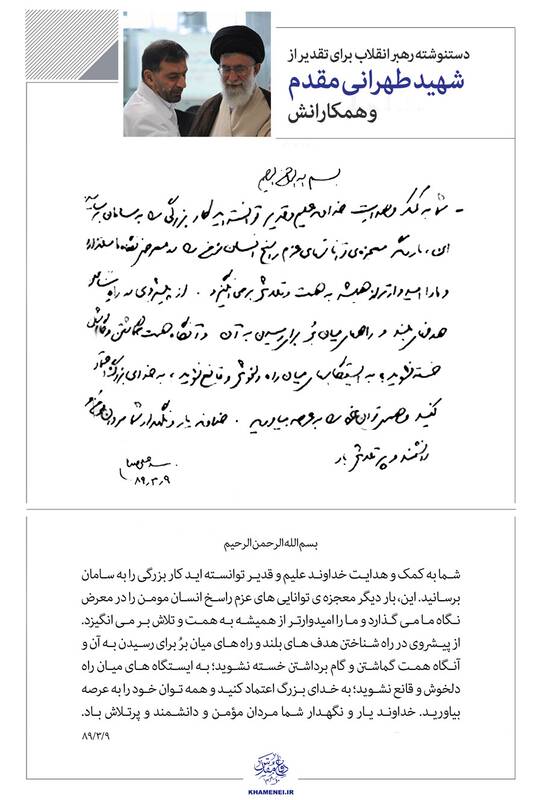 دستنوشته رهبر انقلاب برای تقدیر از
شهید طهرانی مقدم
و همکارانش
بسم الله الرحمن الرحیم
شما به کمک و هدایت خداوند علیم و قدیر توانسته اید کار بزرگی را به سامان برسانید
این، بار دیگر معجزه‌ی توانایی های عزم راسخ انسان مومن را در معرض نگاه ما می گذارد
و ما را امیدوارتر از همیشه به همت و تلاش بر می انگیزد. از پیشروی در راه شناختن
هدف های بلند و راه های میان بُر برای رسیدن به آن و آنگاه همت گماشتن و گام برداشتن
خسته نشوید؛ به ایستگاه های میان راه دلخوش و قانع نشوید، به خدای بزرگ اعتماد
کنید و همه توان خود را به عرصه بیاورید. خداوند یار و نگهدار شما مردان مؤمن و
دانشمند و پرتلاش باد
سید علی خامنه‌ای
۸۹/۳/۹
بسم الله الرحمن الرحیم
شما به کمک و هدایت خداوند علیم و قدیر توانسته اید کار بزرگی را به سامان
برسانید. این، بار دیگر معجزه ی توانایی های عزم راسخ انسان مومن را در معرض
نگاه ما می گذارد و ما را امیدوارتر از همیشه به همت و تلاش بر می انگیزد.
از پیشروی در راه شناختن هدف های بلند و راه های میان بُر برای رسیدن به آن و
آنگاه همت گماشتن و گام برداشتن خسته نشوید؛ به ایستگاه های میان راه
دلخوش و قانع نشوید؛ به خدای بزرگ اعتماد کنید و همه توان خود را به عرصه
بیاورید. خداوند یار و نگهدار شما مردان مؤمن و دانشمند و پرتلاش باد.
۸۹/۳/۹
KHAMENEI.IR